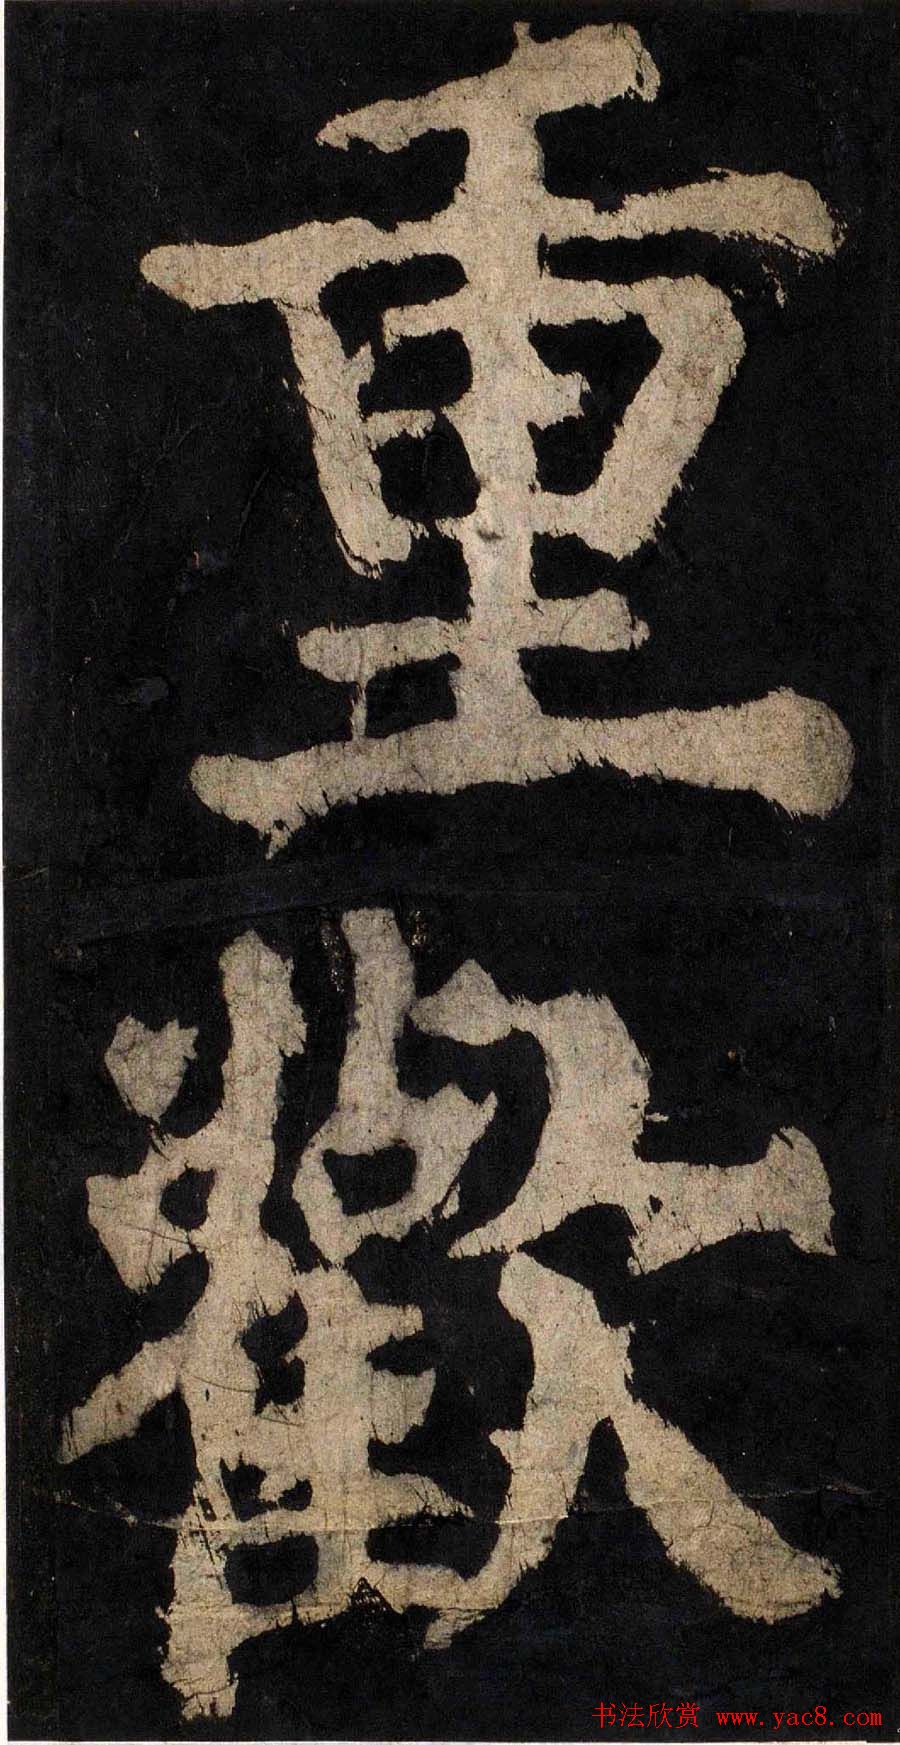 重
歡
书法欣赏 www.yac8.com